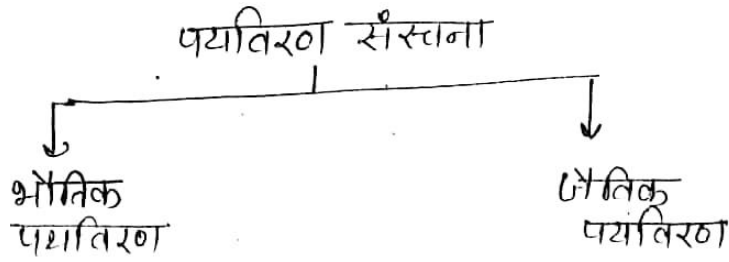 पर्यातिरण संस्चना
भौतिक
पर्यातिरण
जैतिक
पर्यातिरण